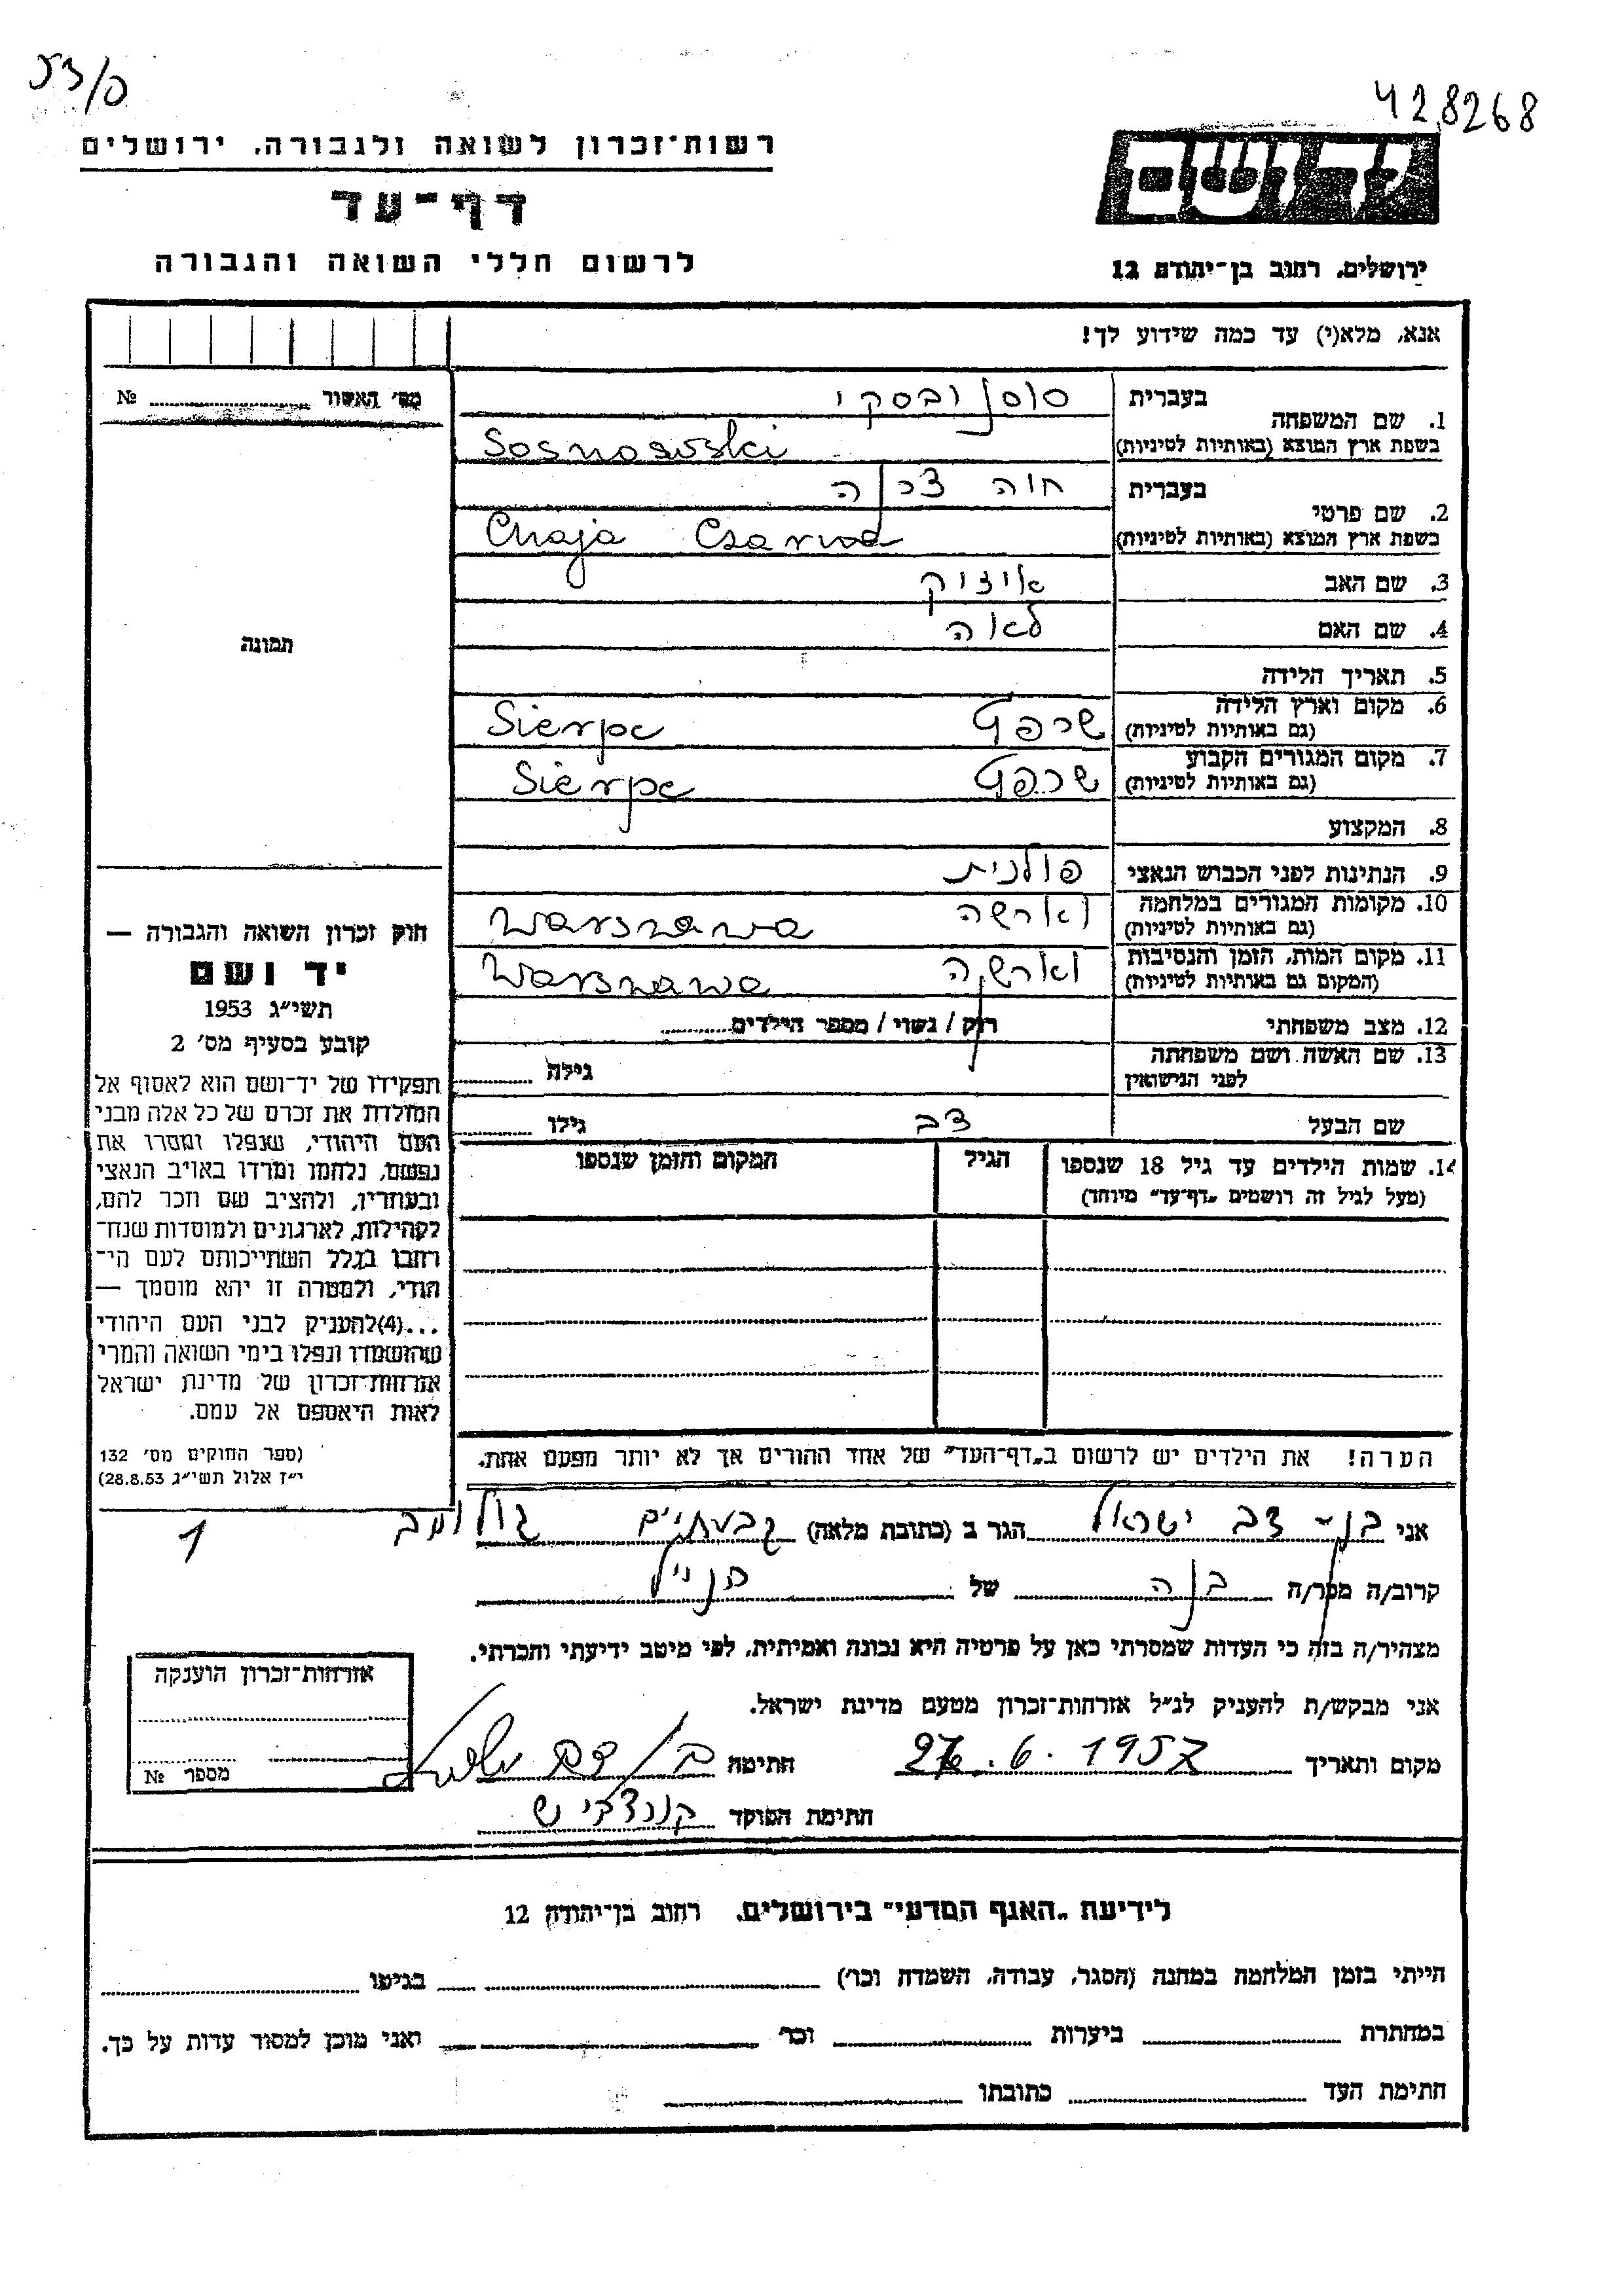 ס/53
428268
רשות־זכרון לשואה ולגבורה, ירושלים
דף־עד
לרשום חללי השואה והגבורה
ידושם
ירושלים, רחוב בן־יהודה 12
אנא, מלא(י) עד כמה שידוע לך!
מס׳ האשור № 
תמונה
1. שם המשפחה
בעברית סוסנובסקי
בשפת ארץ המוצא (באותיות לטיניות) Sosnowski
2. שם פרטי
בעברית חוה צרנה
בשפת ארץ המוצא (באותיות לטיניות) Chaja Czarna
3. שם האב איציק
4. שם האם לאה
5. תאריך הלידה
6. מקום וארץ הלידה (גם באותיות לטיניות) שרפץ Sierpc
7. מקום המגורים הקבוע (גם באותיות לטיניות) שרפץ Sierpc
8. המקצוע
9. הנתינות לפני הכבוש הנאצי פולנית
10. מקומות המגורים במלחמה (גם באותיות לטיניות) וארשה Warszawa
11. מקום המות, הזמן והנסיבות (המקום גם באותיות לטיניות) וארשה Warszawa
12. מצב משפחתי רוק / נשוי / מספר הילדים
13. שם האשה ושם משפחתה לפני הנישואין גילה
שם הבעל צבי גילו
14. שמות הילדים עד גיל 18 שנספו
(מעל לגיל זה רושמים „דף־עד״ מיוחד)
הגיל
המקום והזמן שנספו
הערה! את הילדים יש לרשום ב„דף־העד״ של אחד ההורים אך לא יותר מפעם אחת.
חוק זכרון השואה והגבורה —
יד ושם
תשי״ג 1953
קובע בסעיף מס׳ 2
תפקידו של יד־ושם הוא לאסוף אל
המולדת את זכרם של כל אלה מבני
העם היהודי, שנפלו ומסרו את
נפשם, נלחמו ומרדו באויב הנאצי
ובעוזריו, ולהציב שם וזכר להם,
לקהילות, לארגונים ולמוסדות שנח־
רבו בגלל השתייכותם לעם הי־
הודי, ולמטרה זו יהא מוסמך —
...(4) להעניק לבני העם היהודי
שהושמדו ונפלו בימי השואה והמרי
אזרחות־זכרון של מדינת ישראל
לאות היאספם אל עמם.
(ספר החוקים מס׳ 132
י״ז אלול תשי״ג 28.8.53)
אני בן־צבי ישראל הגר ב (כתובת מלאה) גבעתיים
1
קרוב/ה מכר/ה של
מצהיר/ה בזה כי העדות שמסרתי כאן על פרטיה היא נכונה ואמיתית, לפי מיטב ידיעתי והכרתי.
אני מבקש/ת להעניק לנ״ל אזרחות־זכרון מטעם מדינת ישראל.
מקום ותאריך 6.1957 חתימה
חתימת הפוקד
אזרחות־זכרון הוענקה
מספר №
לידיעת „האגף המדעי״ בירושלים, רחוב בן־יהודה 12
הייתי בזמן המלחמה במחנה (הסגר, עבודה, השמדה וכו׳) בגיטו
במחתרת ביערות וכו׳ ואני מוכן למסור עדות על כך.
חתימת העד כתובתו